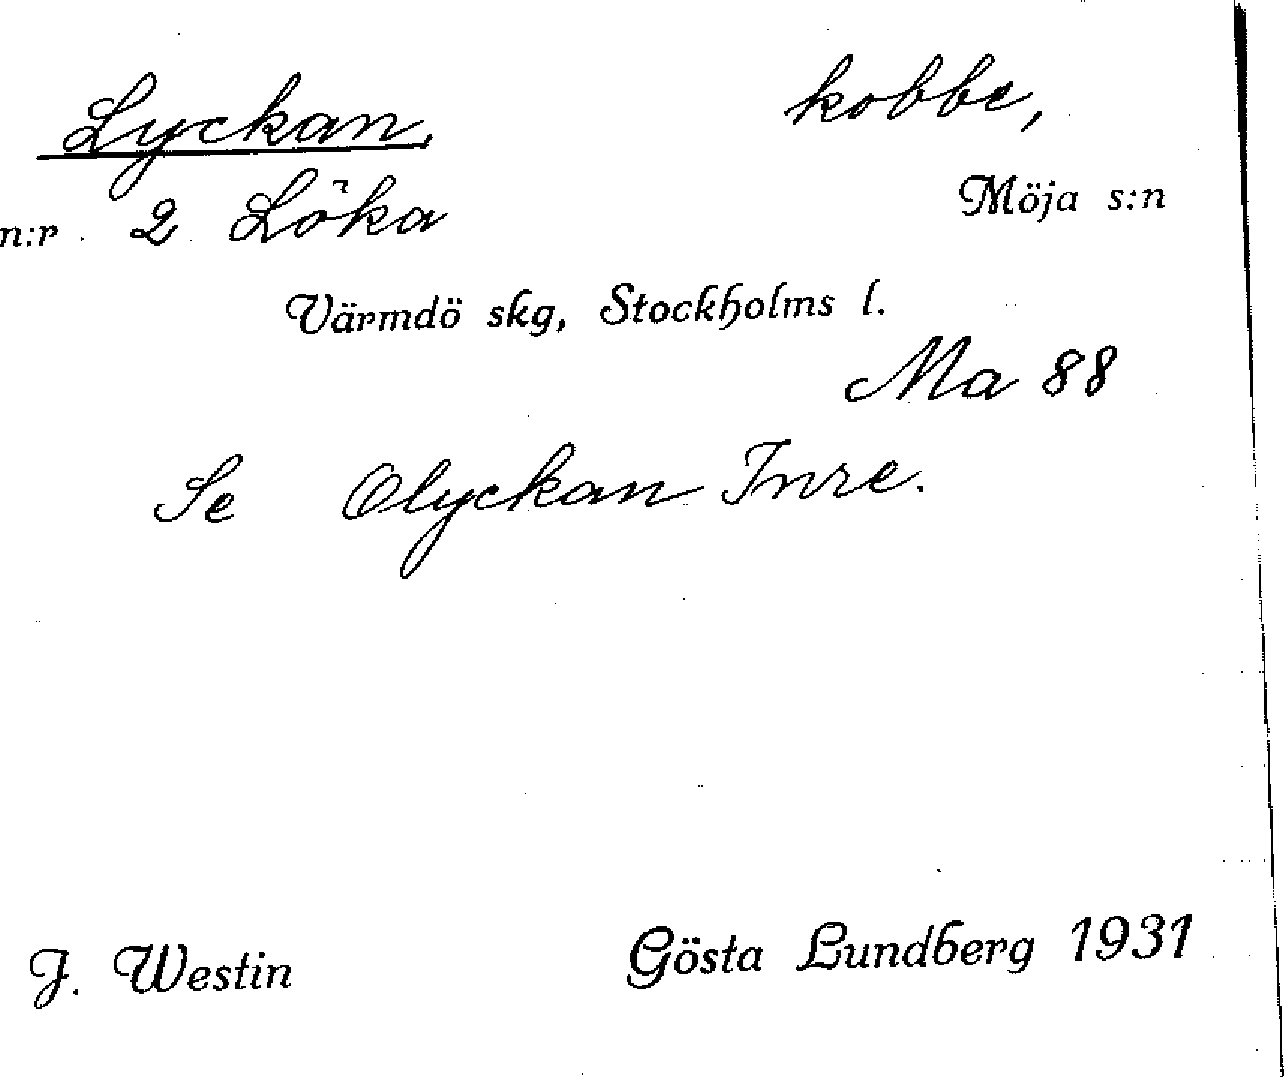 Lyckan, kobbe,
n:r 2 Löka Möja s:n
Värmdö skg, Stockholms l.
Ma 88
Se Olyckan Inre.
J. Westin Gösta Lundberg 1931